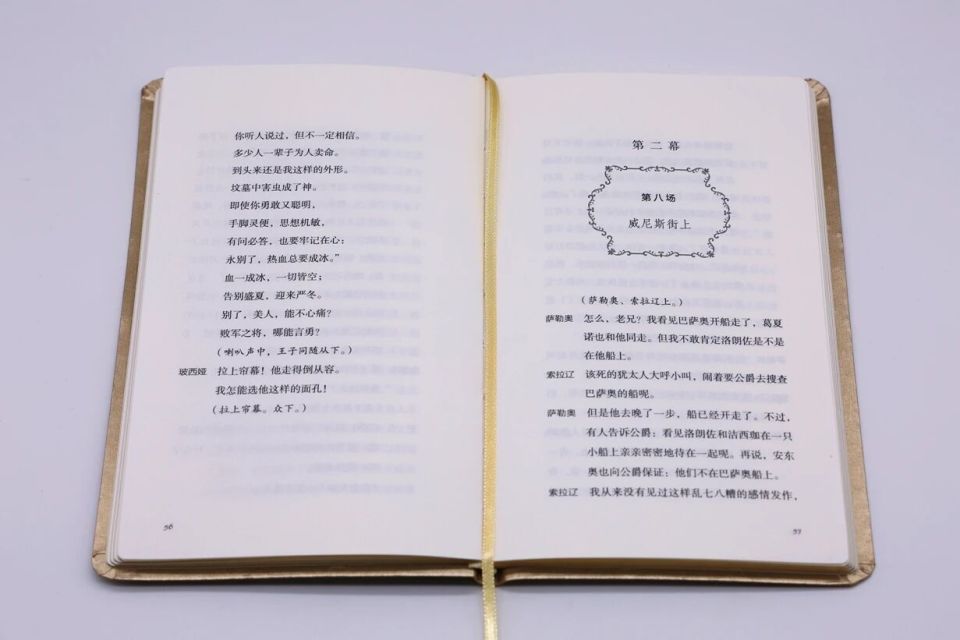 你听人说过，但不一定相信。
多少人一辈子为人卖命。
到头来还是我这样的外形。
坟墓中害虫成了神。
即使你勇敢又聪明，
手脚灵便，思想机敏，
有问必答，也要牢记在心：
永别了，热血总要成冰。”
血一成冰，一切皆空；
告别盛夏，迎来严冬。
别了，美人，能不心痛？
败军之将，哪能言勇？
（喇叭声中，王子同随从下。）
玻西娅 拉上帘幕！他走得倒从容。
我怎能选他这样的面孔！
（拉上帘幕。众下。）
56
第二幕
第八场
威尼斯街上
（萨勒奥、索拉辽上。）
萨勒奥 怎么，老兄？我看见巴萨奥开船走了，葛夏
诺也和他同走。但我不敢肯定洛朗佐是不是
在他船上。
索拉辽 该死的犹太人大呼小叫，闹着要公爵去搜查
巴萨奥的船呢。
萨勒奥 但是他去晚了一步，船已经开走了。不过，
有人告诉公爵：看见洛朗佐和洁西珈在一只
小船上亲亲密密地待在一起呢。再说，安东
奥也向公爵保证：他们不在巴萨奥船上。
索拉辽 我从来没有见过这样乱七八糟的感情发作，
57